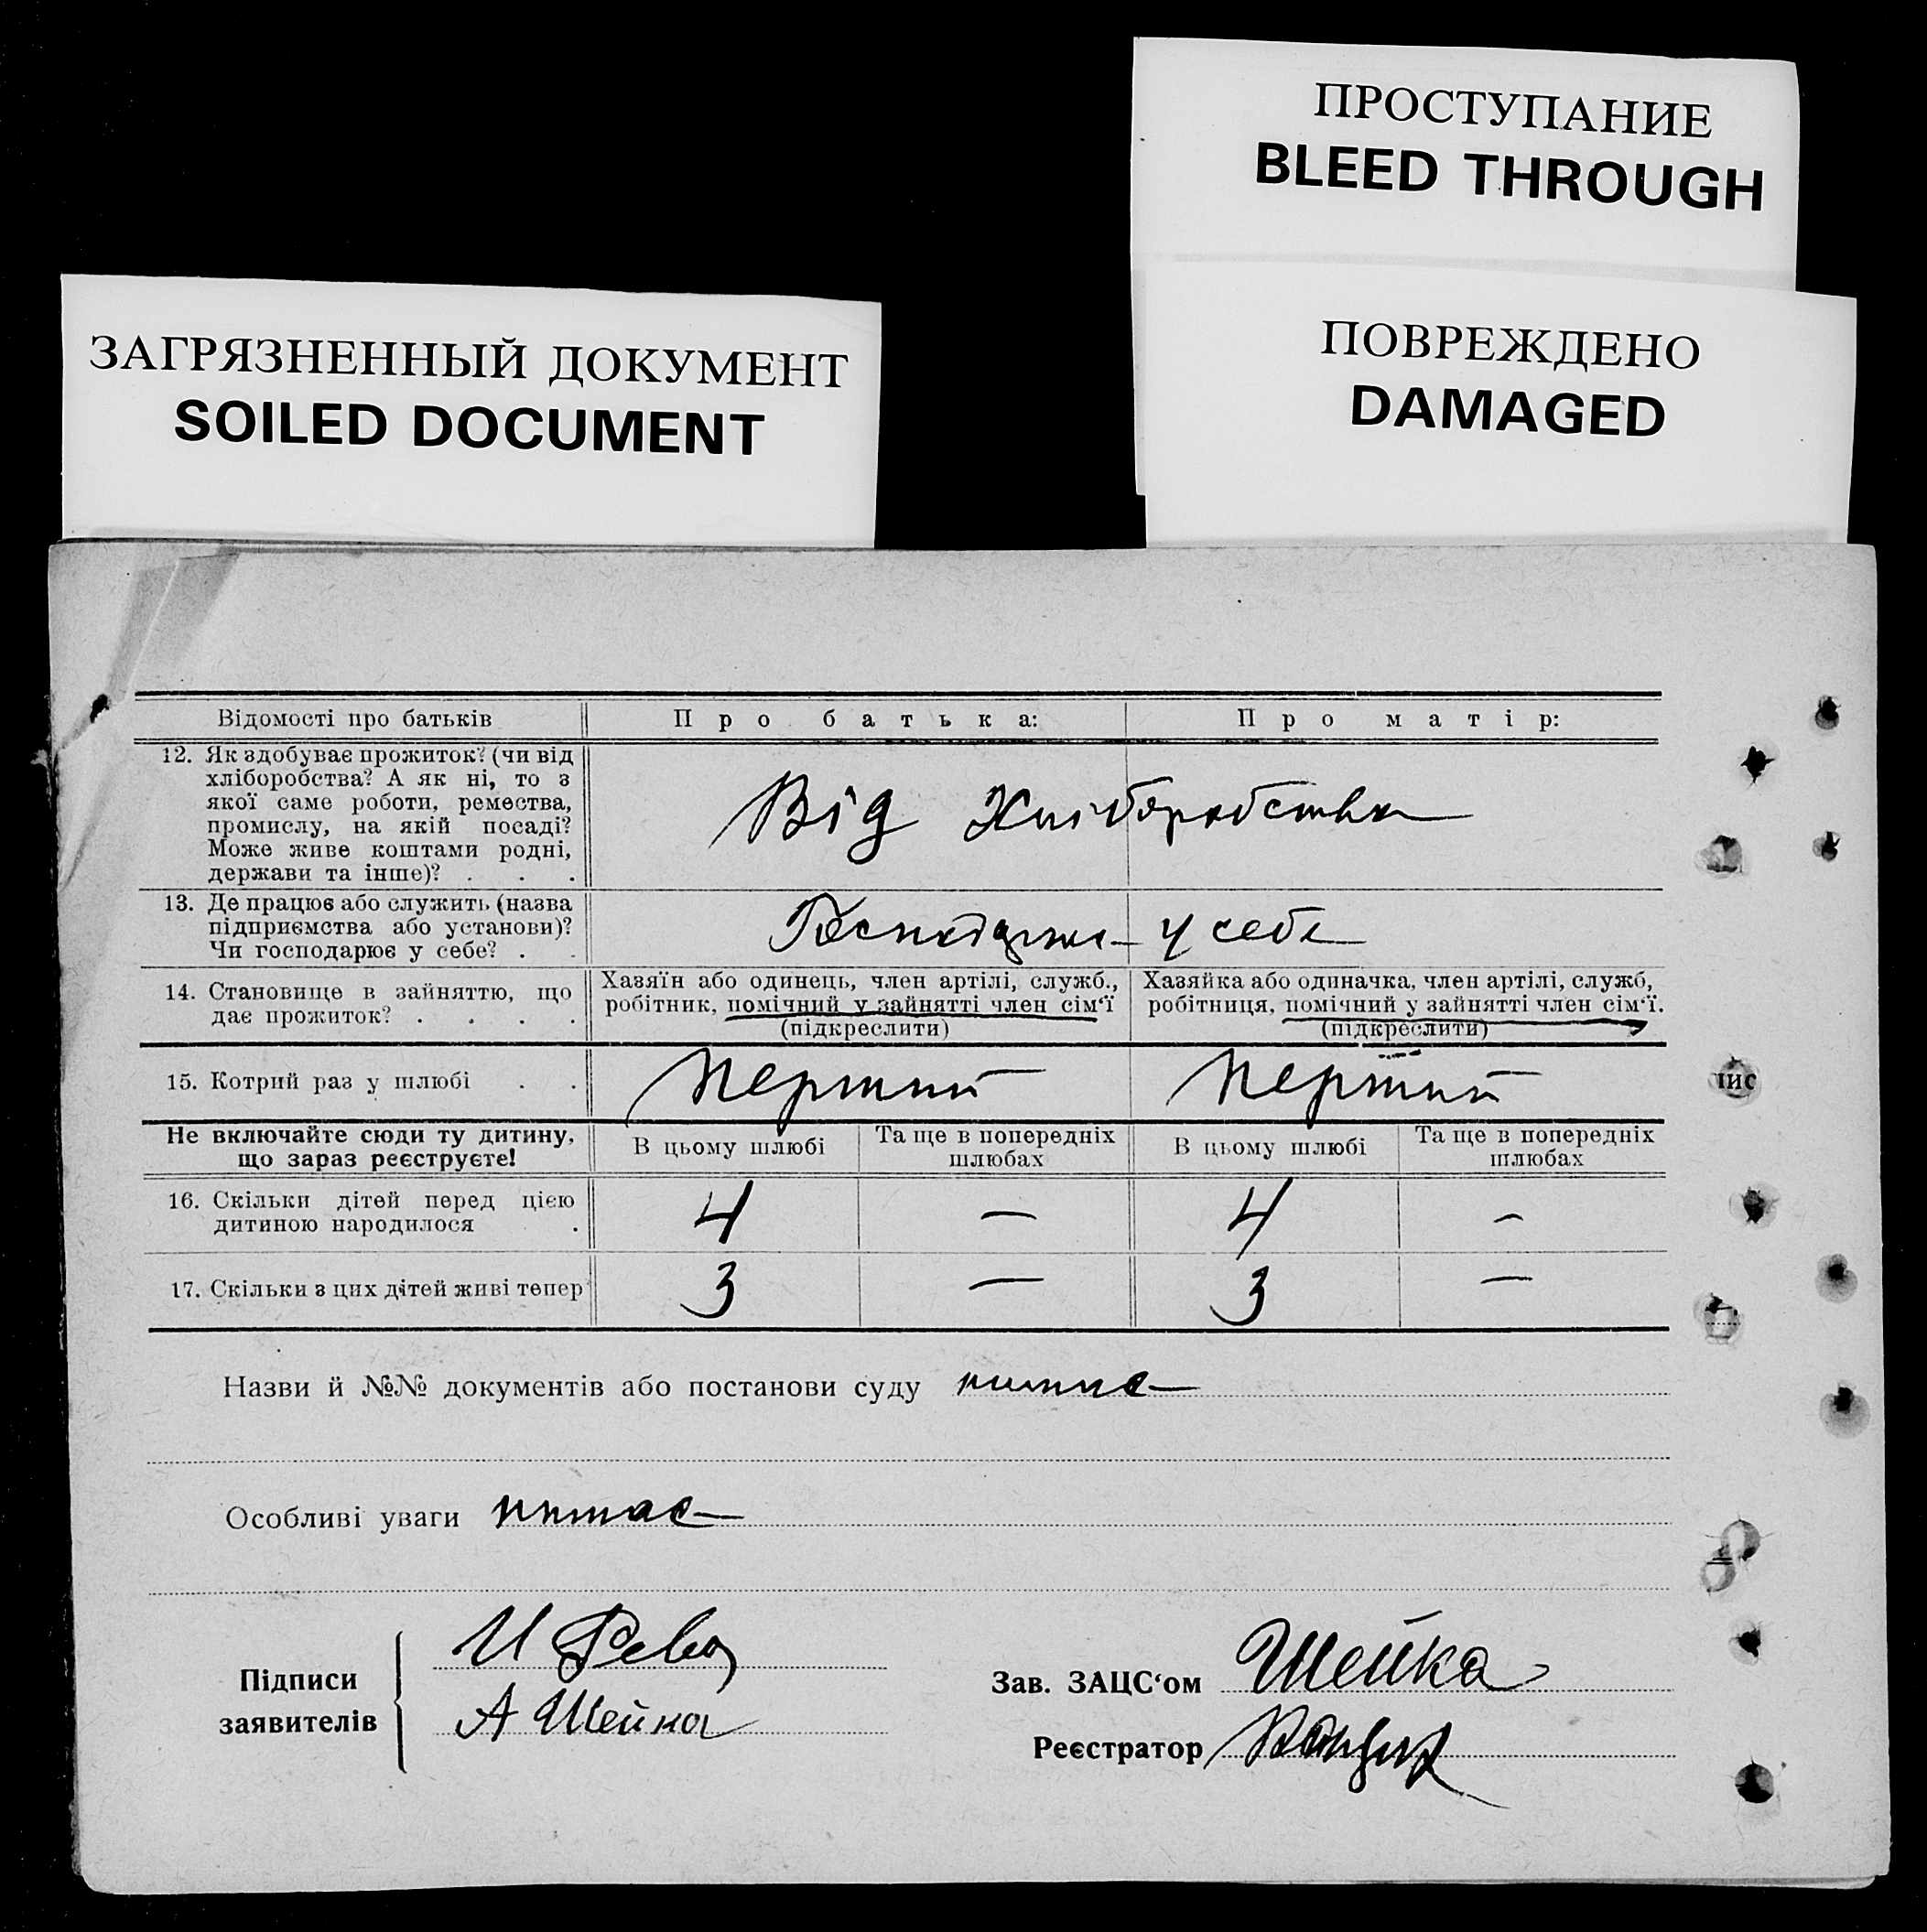 ПРОСТУПАНИЕ
BLEED THROUGH
ПОВРЕЖДЕНО
DAMAGED
ЗАГРЯЗНЕННЫЙ ДОКУМЕНТ
SOILED DOCUMENT
Відомості про батьків Про батька: Про матір:
12. Як здобуває прожиток? (чи від
хліборобства? А як ні, то з
якої саме роботи, ремества,
промислу, на якій посаді?
Може живе коштами родні,
держави та інше)? . . .
Від Хліборобства
13. Де працює або служить (назва
підприємства або установи)?
Чи господарює у себе? . .
у себе
14. Становище в зайняттю, що
дає прожиток? . . . .
Хазяїн або одинець, член артілі, служб.,
робітник, помічний у зайнятті член сім'ї
(підкреслити)
Хазяйка або одиначка, член артілі, служб,
робітниця, помічний у зайнятті член сім'ї.
(підкреслити)
15. Котрий раз у шлюбі . . Перший Перший
Не включайте сюди ту дитину,
що зараз реєструєте!
В цьому шлюбі
Та ще в попередніх
шлюбах
В цьому шлюбі
Та ще в попередніх
шлюбах
16. Скільки дітей перед цією
дитиною народилося .
4 — 4 —
17. Скільки з цих дітей живі тепер 3 — 3 —
пис
Назви й №№ документів або постанови суду немає
Особливі уваги немає
Підписи
заявителів
И Рева
А Шейка
Зав. ЗАЦС'ом Шейка
Реєстратор